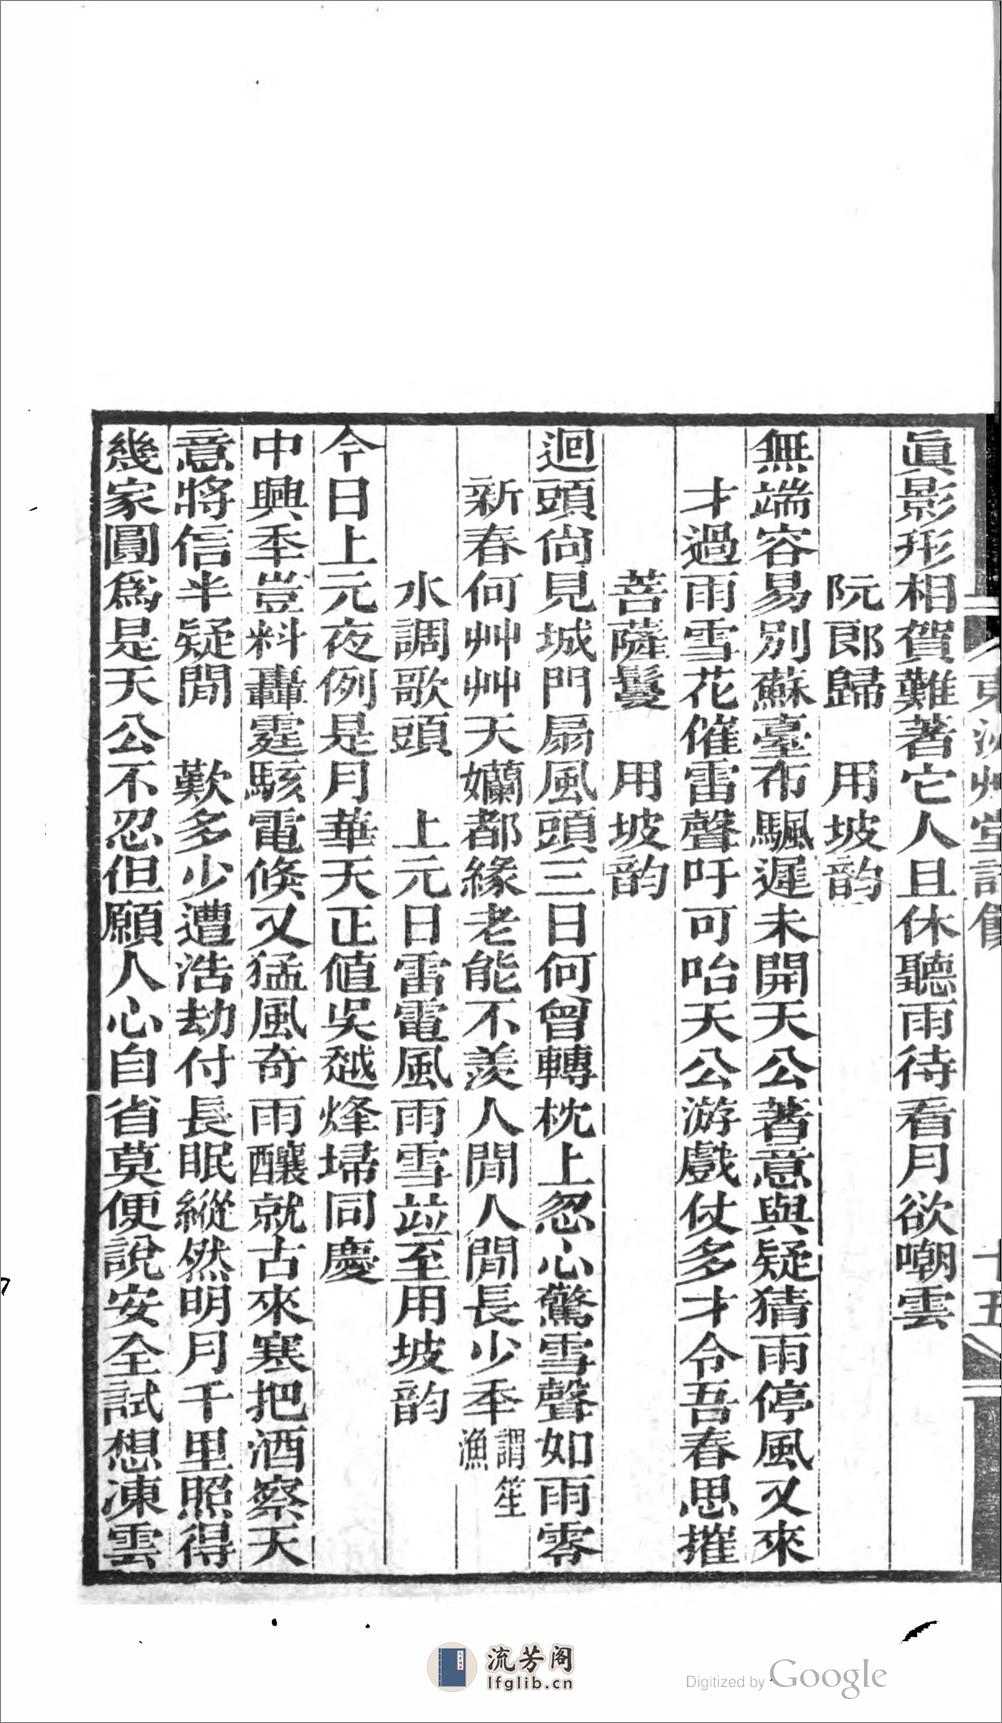 眞影形相賀難著它人且休聽雨待看月欲嘲雲
阮郎歸　用坡韵
無端容易別蘇臺布颿遲未開天公著意與疑猜雨停風又來
才過雨雪花催雷聲吁可咍天公游戲仗多才令吾春思摧
菩薩鬘　用坡韵
迴頭尙見城門扇風頭三日何曾轉枕上忽心驚雪聲如雨零
新春何艸艸天孏都緣老能不羡人閒人閒長少秊謂笙漁
水調歌頭　上元日雷電風雨雪竝至用坡韵
今日上元夜例是月華天正値吳越烽埽同慶
中興秊豈料轟霆駭電倏又猛風奇雨釀就古來寒把酒察天
意將信半疑閒　歎多少遭浩劫付長眠縱然明月千里照得
幾家圓爲是天公不忍但願人心自省莫便說安全試想凍雲
十五
流芳阁
lfglib.cn
Digitized by Google